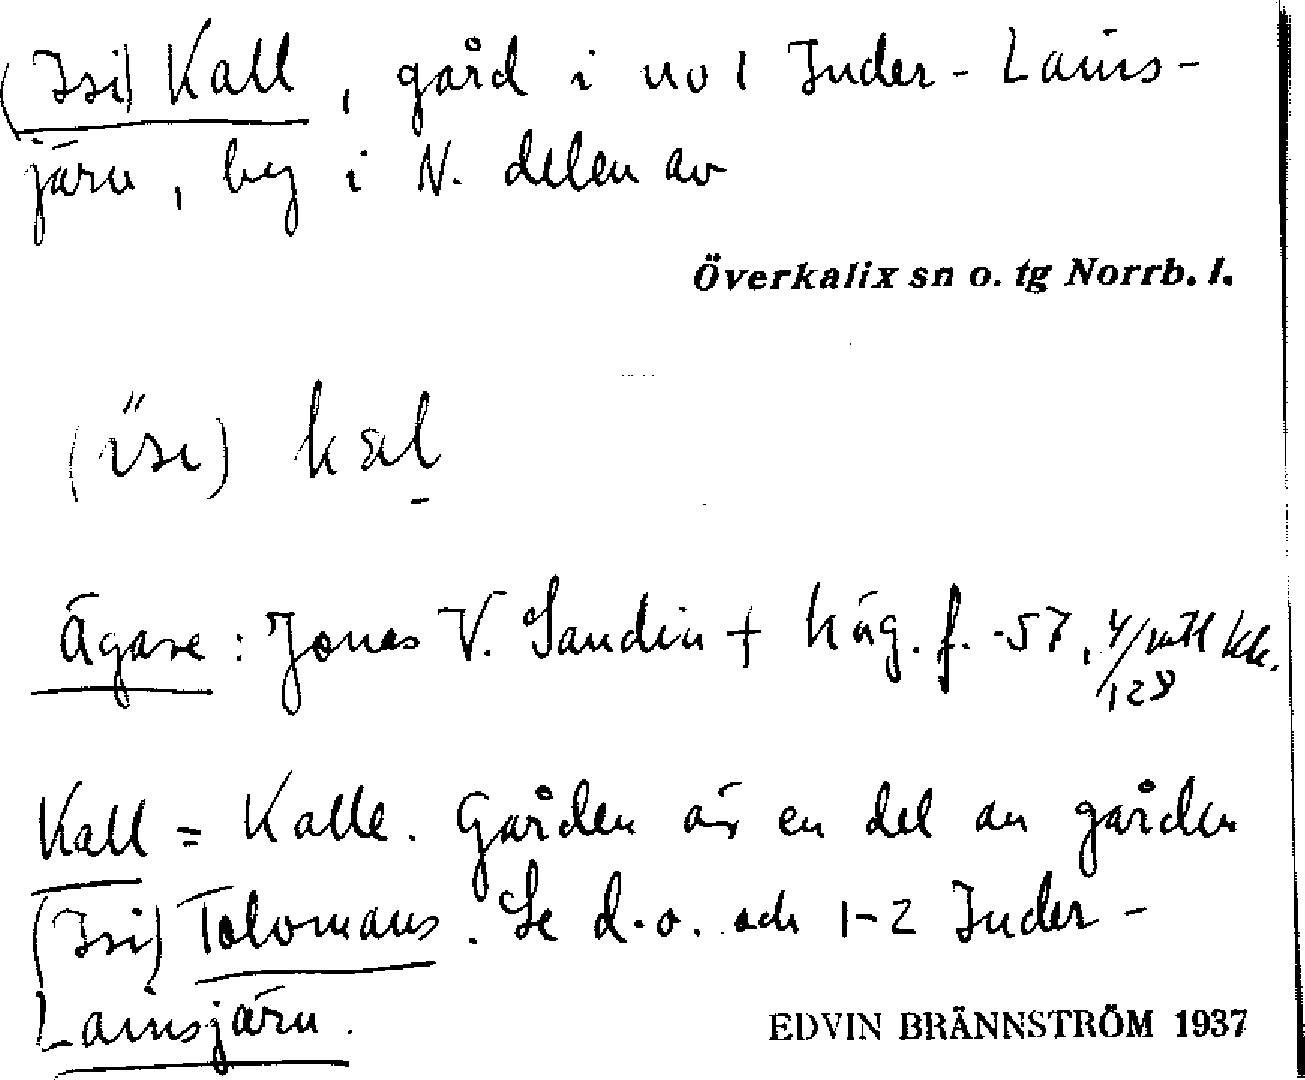 (Isi) Kall, gård i no 1 Inder-Lains-
järn, by i N. delen av
Överkalix sn o. tg Norrb. l.
(ïsi) kal
Ägare: Jonas V. Sandin + häg. f. -57, kk.
128
Kall = Kalle. Gården är en del av gården
(Isi) Tolomans. Se d.o. och 1-2 Inder-
Lainsjärn.
EDVIN BRÄNNSTRÖM 1937